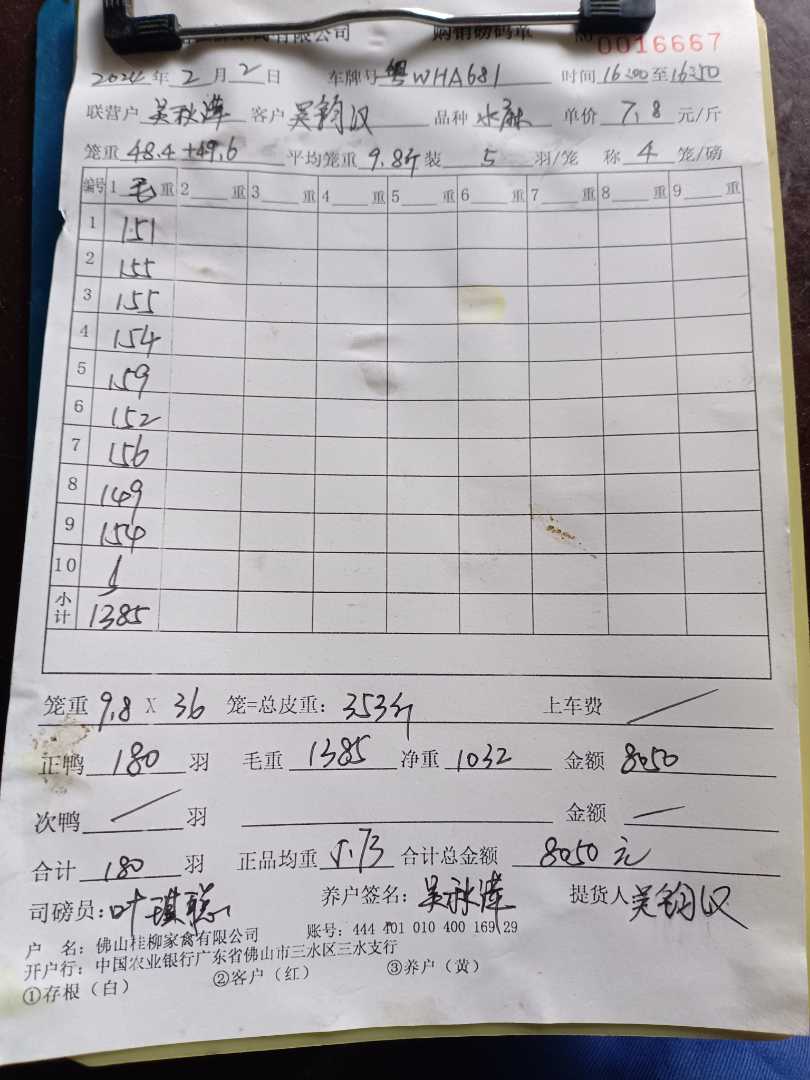 有限公司 购销磅码单 0016667
2024年2月2日 车牌号 粤WHA681 时间 16:00至16:50
联营户 吴秋潍 客户 吴钧汉 品种 水麻 单价 7.8 元/斤
笼重 48.4+49.6 平均笼重 9.8斤 装 5 羽/笼 称 4 笼/磅
编号 1 毛 重 2 重 3 重 4 重 5 重 6 重 7 重 8 重 9 重
1 151
2 155
3 155
4 154
5 159
6 152
7 156
8 149
9 154
10
小计 1385
笼重 9.8 X 36 笼=总皮重: 353斤 上车费
正鸭 180 羽 毛重 1385 净重 1032 金额 8050
次鸭 羽 金额
合计 180 羽 正品均重 5.73 合计总金额 8050 元
司磅员: 叶琪聪 养户签名: 吴秋潍 提货人 吴钧汉
户 名: 佛山桂柳家禽有限公司 账号: 444 401 010 400 169 29
开户行: 中国农业银行广东省佛山市三水区三水支行
①存根（白） ②客户（红） ③养户（黄）